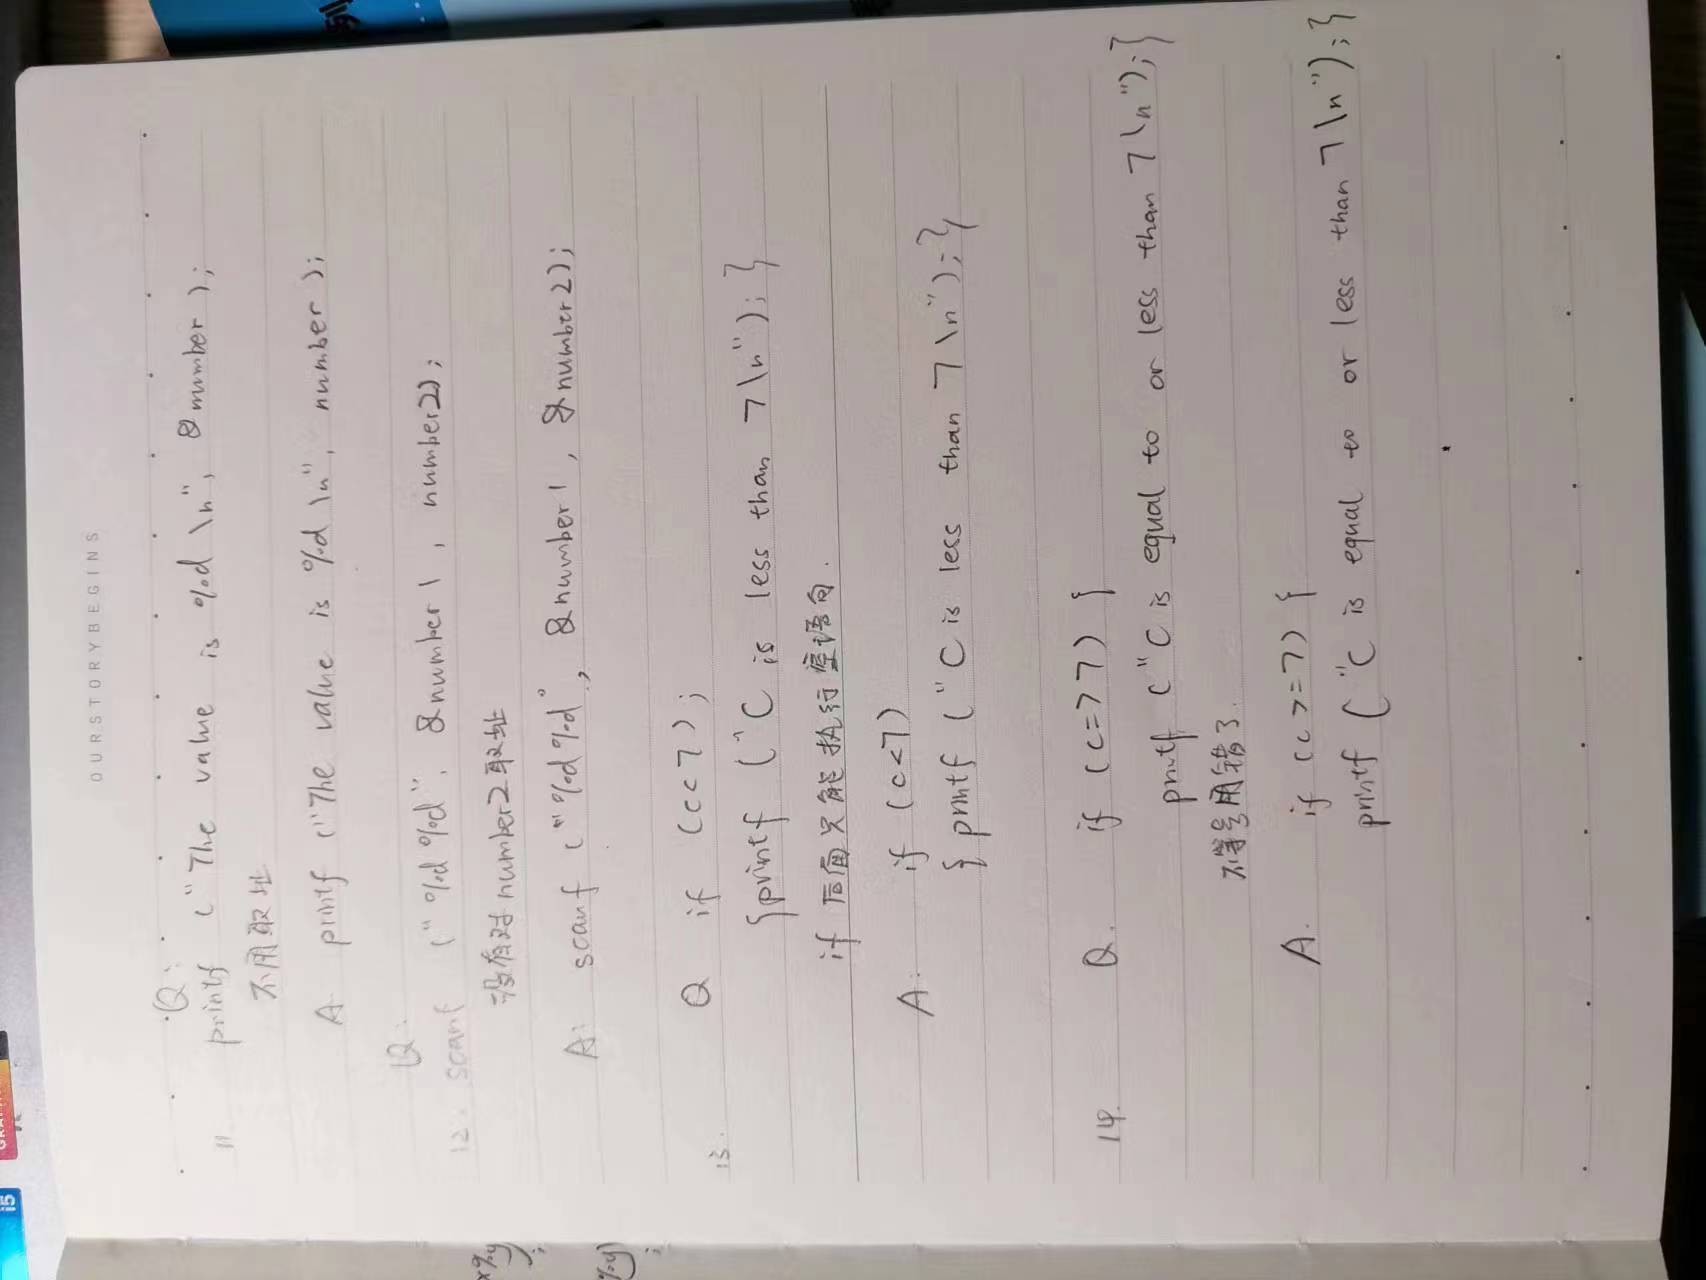 OURSTORYBEGINS
Q:
11 printf ("The value is %d \n", &number);
不用取址
A printf ("The value is %d \n", number);
Q:
12. scanf ("%d %d", &number1, number2);
没有对number2取址
A: scanf ("%d%d", &number1, &number2);
13. Q if (c<7);
{printf ("C is less than 7\n");}
if 后面只能执行空语句.
A. if (c<7)
{printf ("C is less than 7\n");}
14. Q. if (c=>7) {
printf ("C is equal to or less than 7\n");}
不等号用错了.
A. if (c>=7) {
printf ("C is equal to or less than 7\n");}
i5